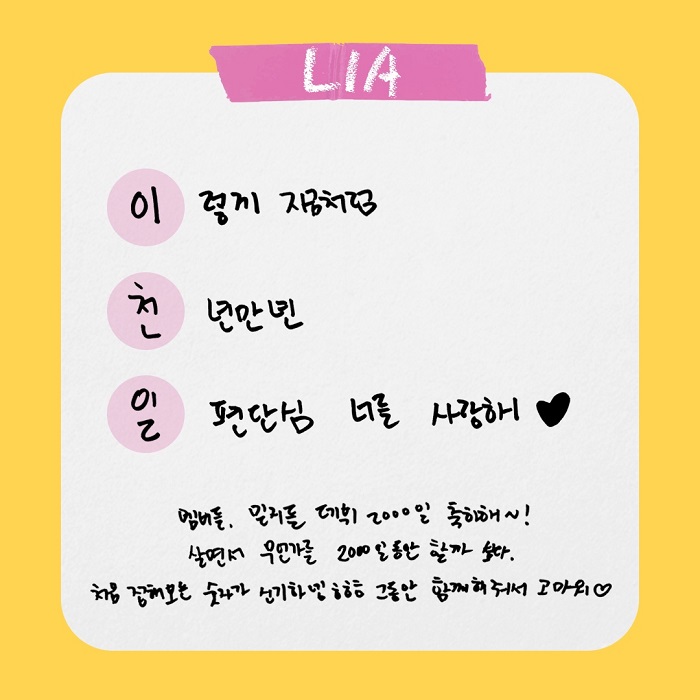 LIA
이 렇게 지금처럼
천 년만년
일 편단심 너를 사랑해 ♥
멤버들, 믿지들 데뷔 2000일 축하해~!
살면서 무언가를 2000일동안 할까 싶다.
처음 접해보는 숫자가 신기하넹 ㅎㅎ 그동안 함께해줘서 고마워♡